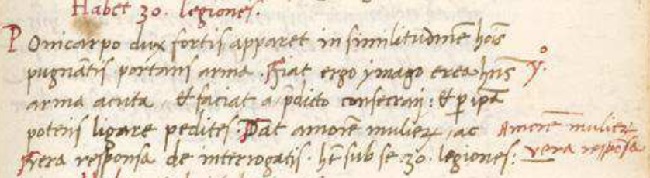 Habet 30. legiones
POnicarpo dux fortis apparet in similitudinẽ hoĩs
pugnãtis portans arma. Fiat ergo ymago erea hñs
arma acuta. Et faciat a p̃dicto consecrari: & p ipã
potens ligare pedites. Dat amorẽ mulieꝝ ac Amorẽ mulieꝝ
vera responsa de interrogatis. hẽt sub se 30. legiones: vera respõsa